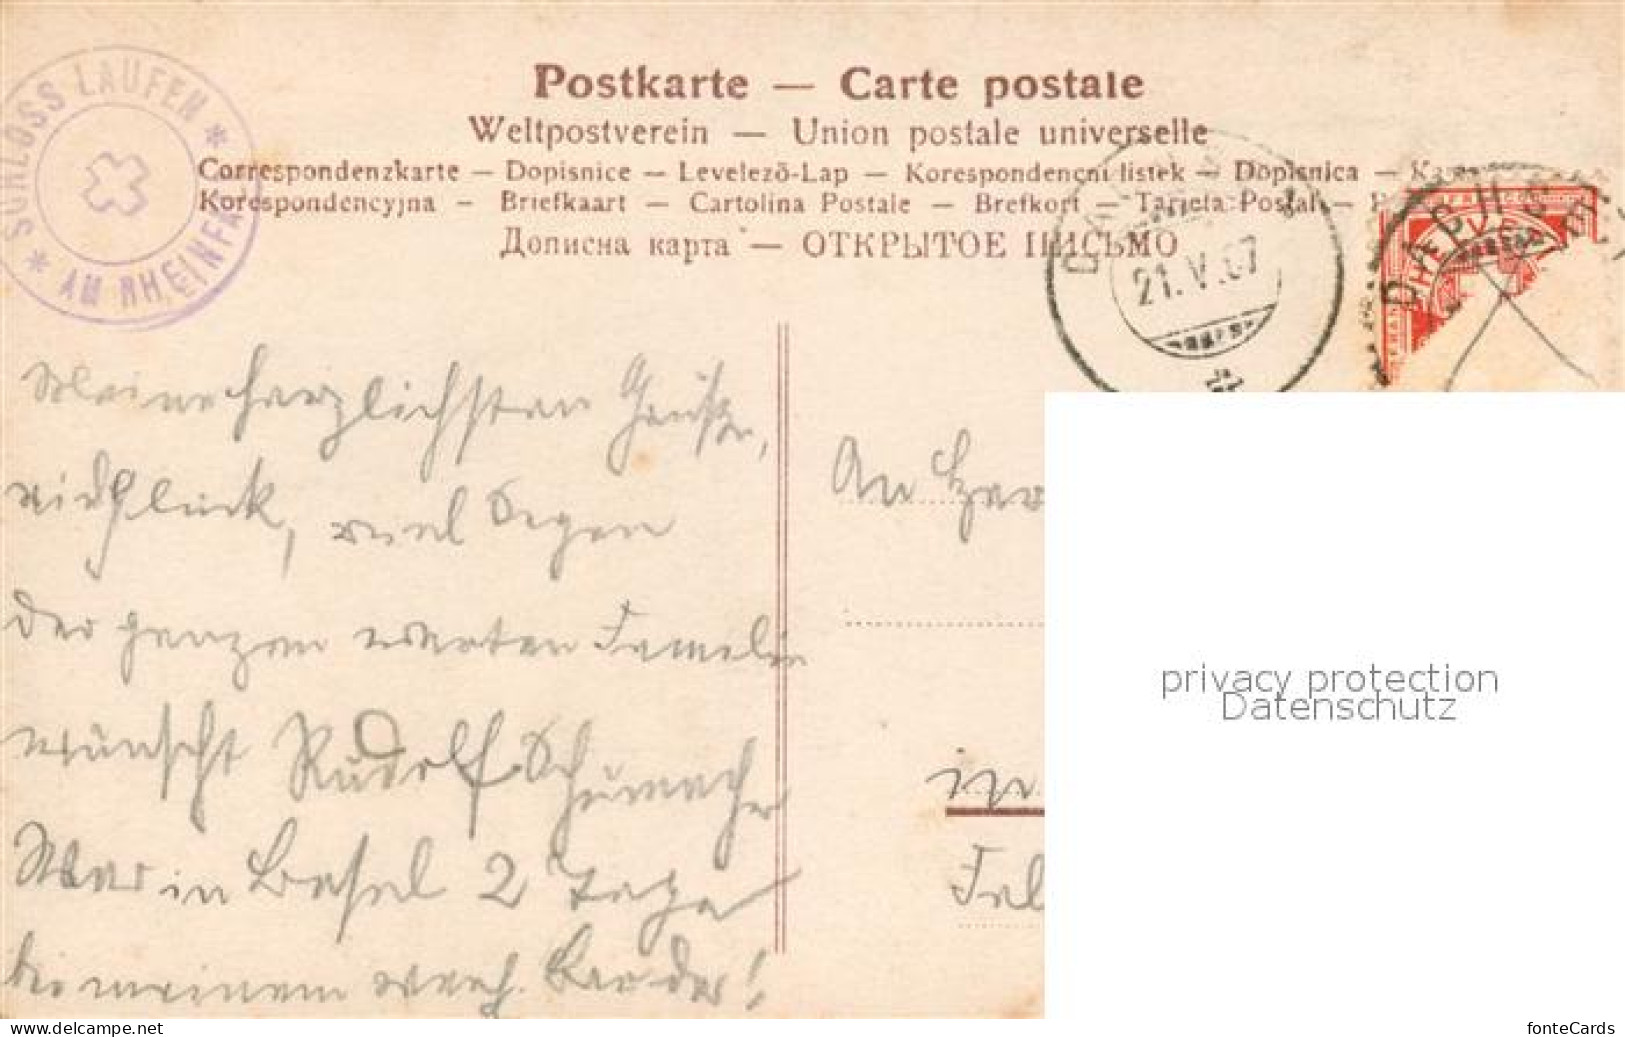 SCHLOSS LAUFEN
* AM RHEINFALL *
Postkarte — Carte postale
Weltpostverein — Union postale universelle
Correspondenzkarte — Dopisnice — Levelező-Lap — Korespondenční listek — Dopisnica —
Korespondencyjna — Briefkaart — Cartolina Postale — Brefkort — Tarjeta Postal —
Дописна карта — ОТКРЫТОЕ ПИСЬМО
21.V.07
DACHS
Meine herzlichsten Grüße,
viel Segen
der ganzen werten Familie
wünscht Rudolf Schumacher
War in Basel 2 Tage
bei meinem Bruder!
An Herr
in
privacy protection
Datenschutz
www.delcampe.net
fonteCards